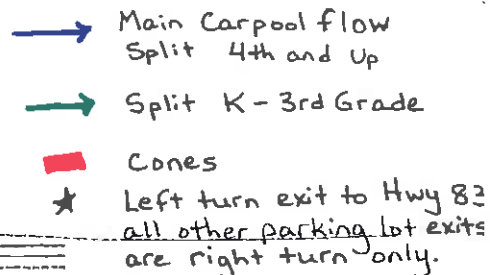 Main Carpool flow
Split 4th and Up
Split K-3rd Grade
Cones
Left turn exit to Hwy 83
all other parking lot exits
are right turn only.